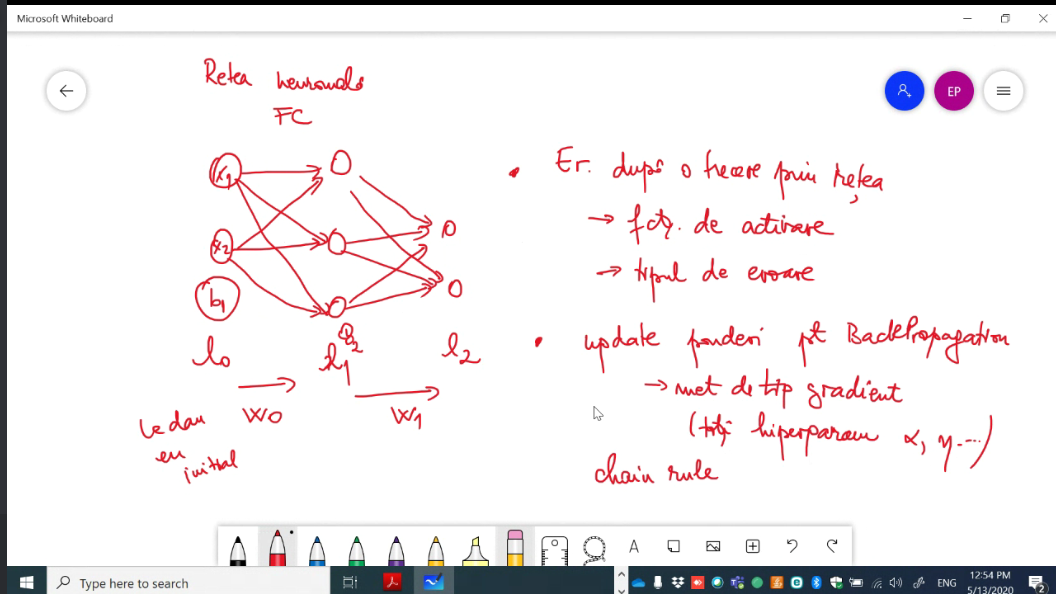 Microsoft Whiteboard
Retea neuronală
FC
EP
x1
x2
b1
l0
l1
b2
l2
W0
W1
le dau
eu
initial
• Er. după o trecere prin rețea
→ fcț. de activare
→ tipul de eroare
• update ponderi pt BackPropagation
→ met de tip gradient
(toți hiperparam α, η...)
chain rule
A
Type here to search
ENG
12:54 PM
5/13/2020
2